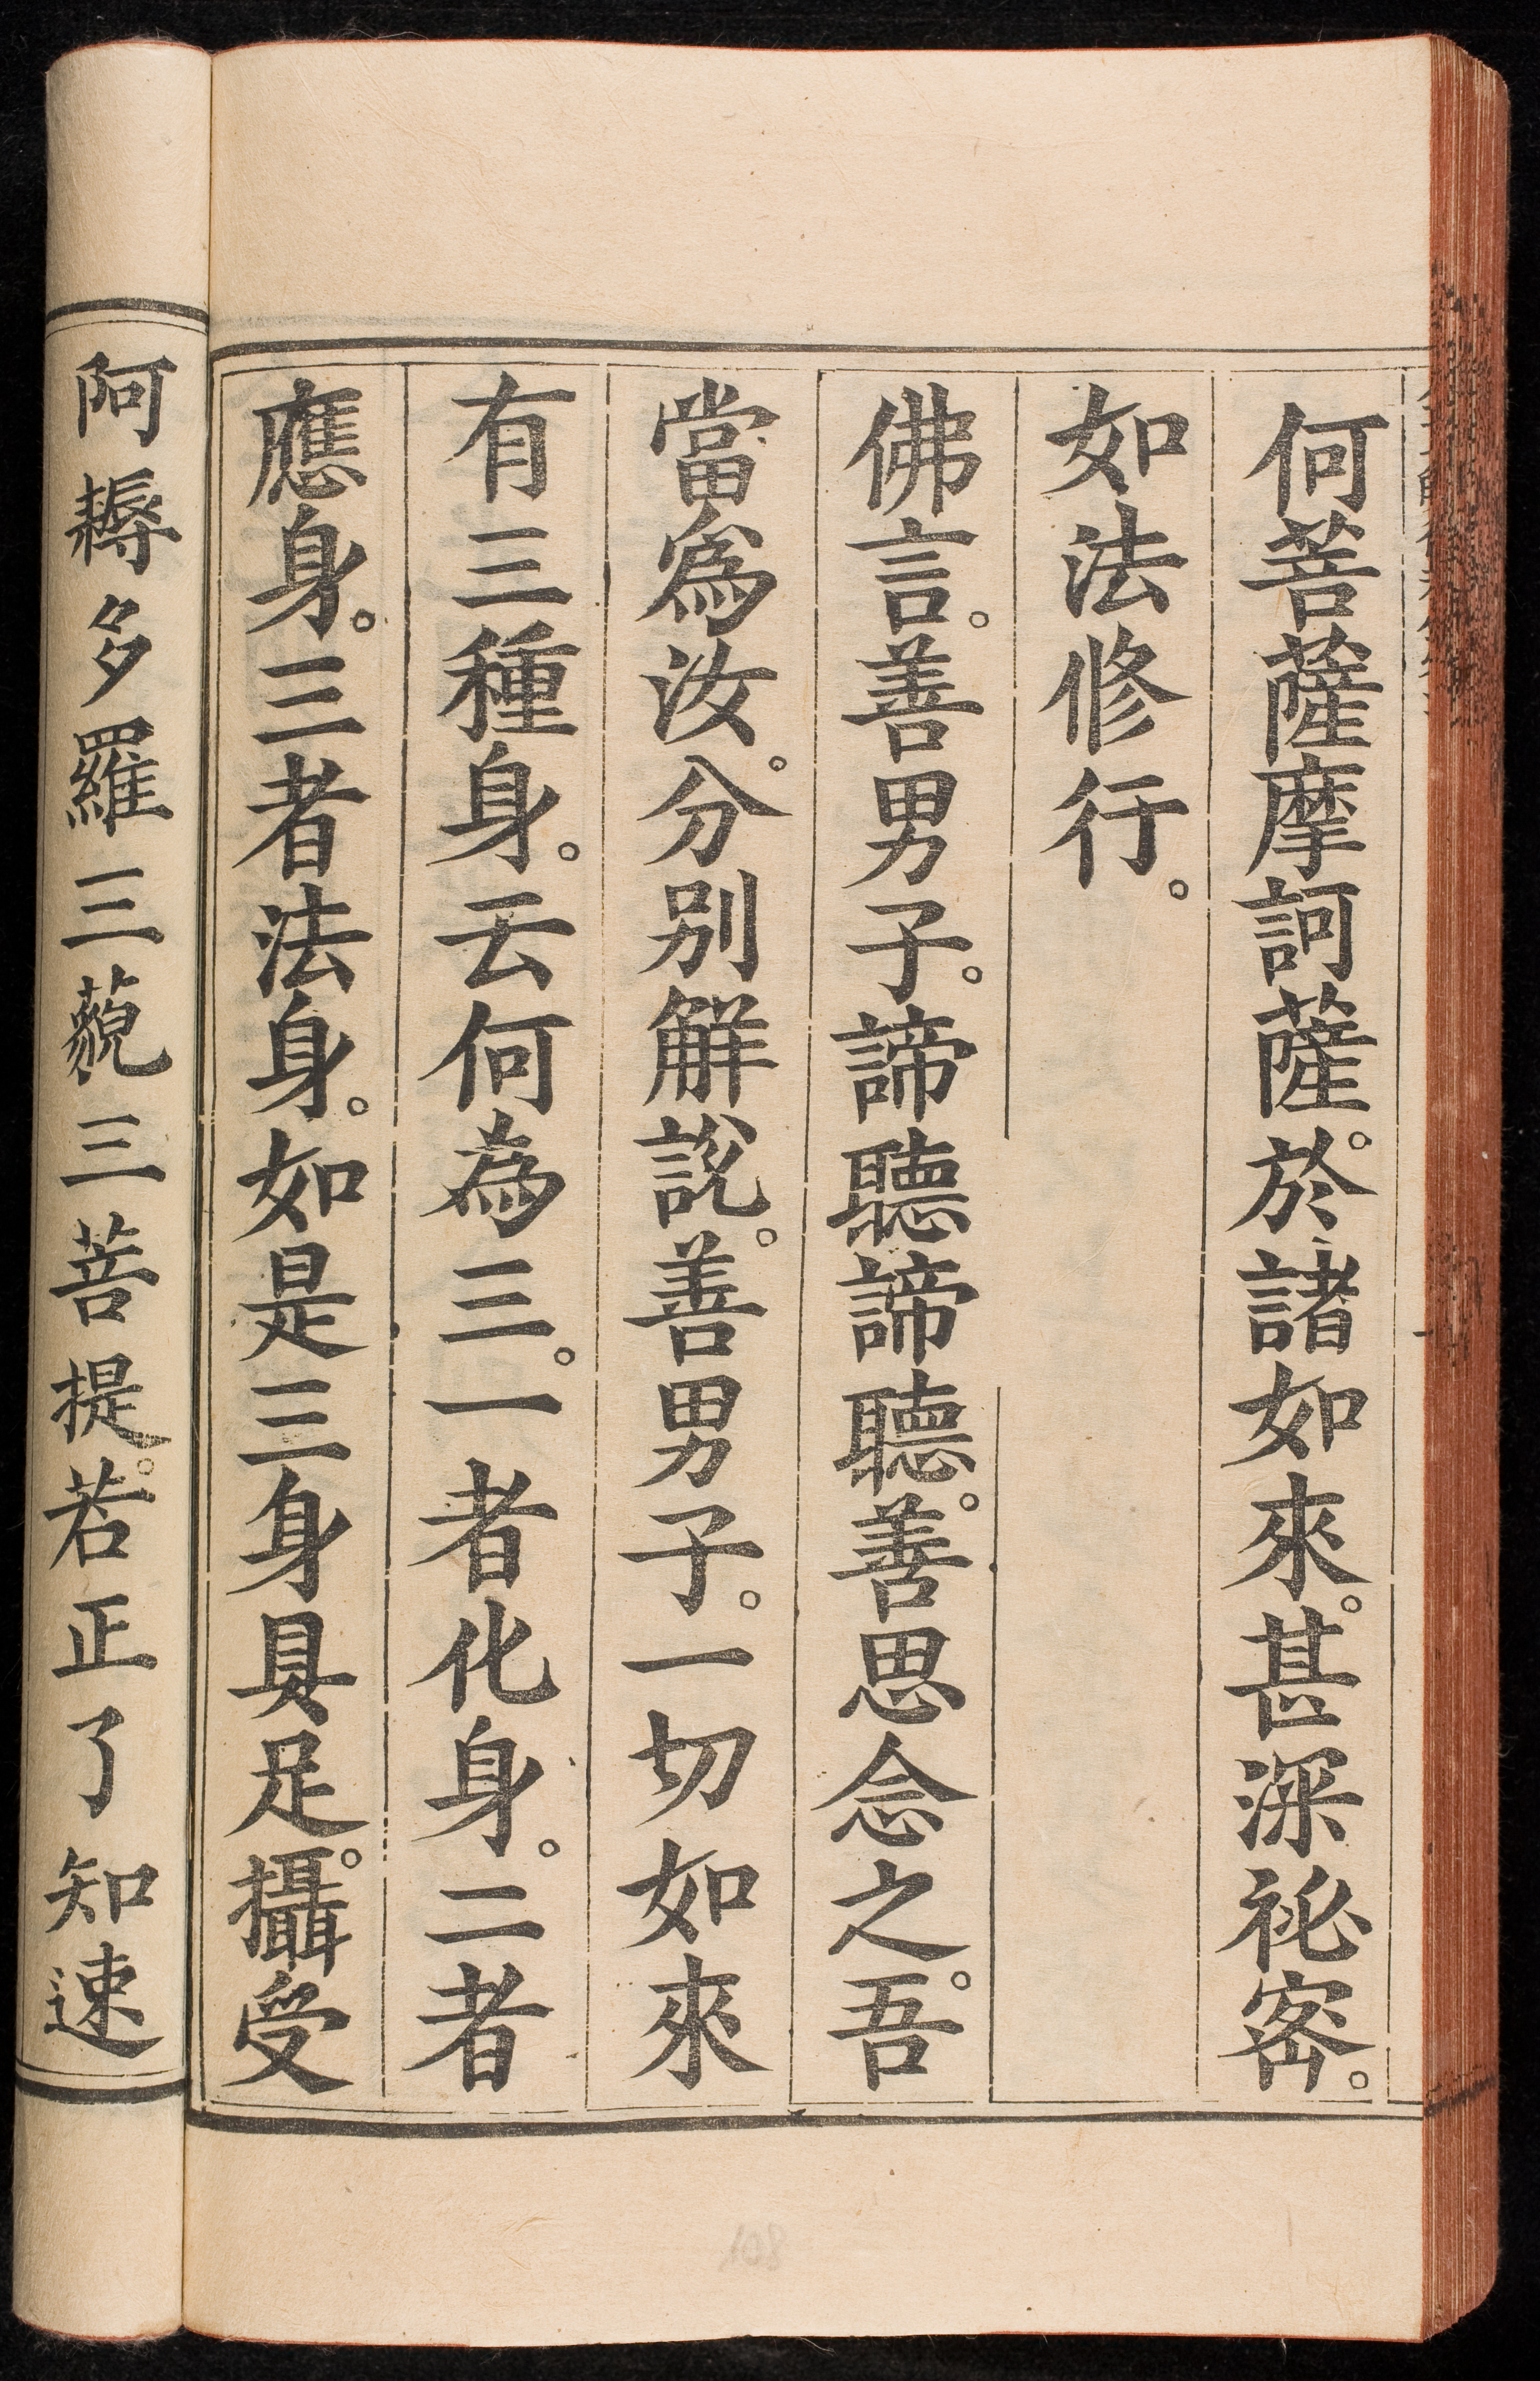 何菩薩摩訶薩。於諸如來。甚深祕密。
如法修行。
佛言。善男子。諦聽諦聽。善思念之。吾
當爲汝。分别解說。善男子。一切如來
有三種身。云何為三。一者化身。二者
應身。三者法身。如是三身具足。攝受
阿耨多羅三藐三菩提。若正了知速
108